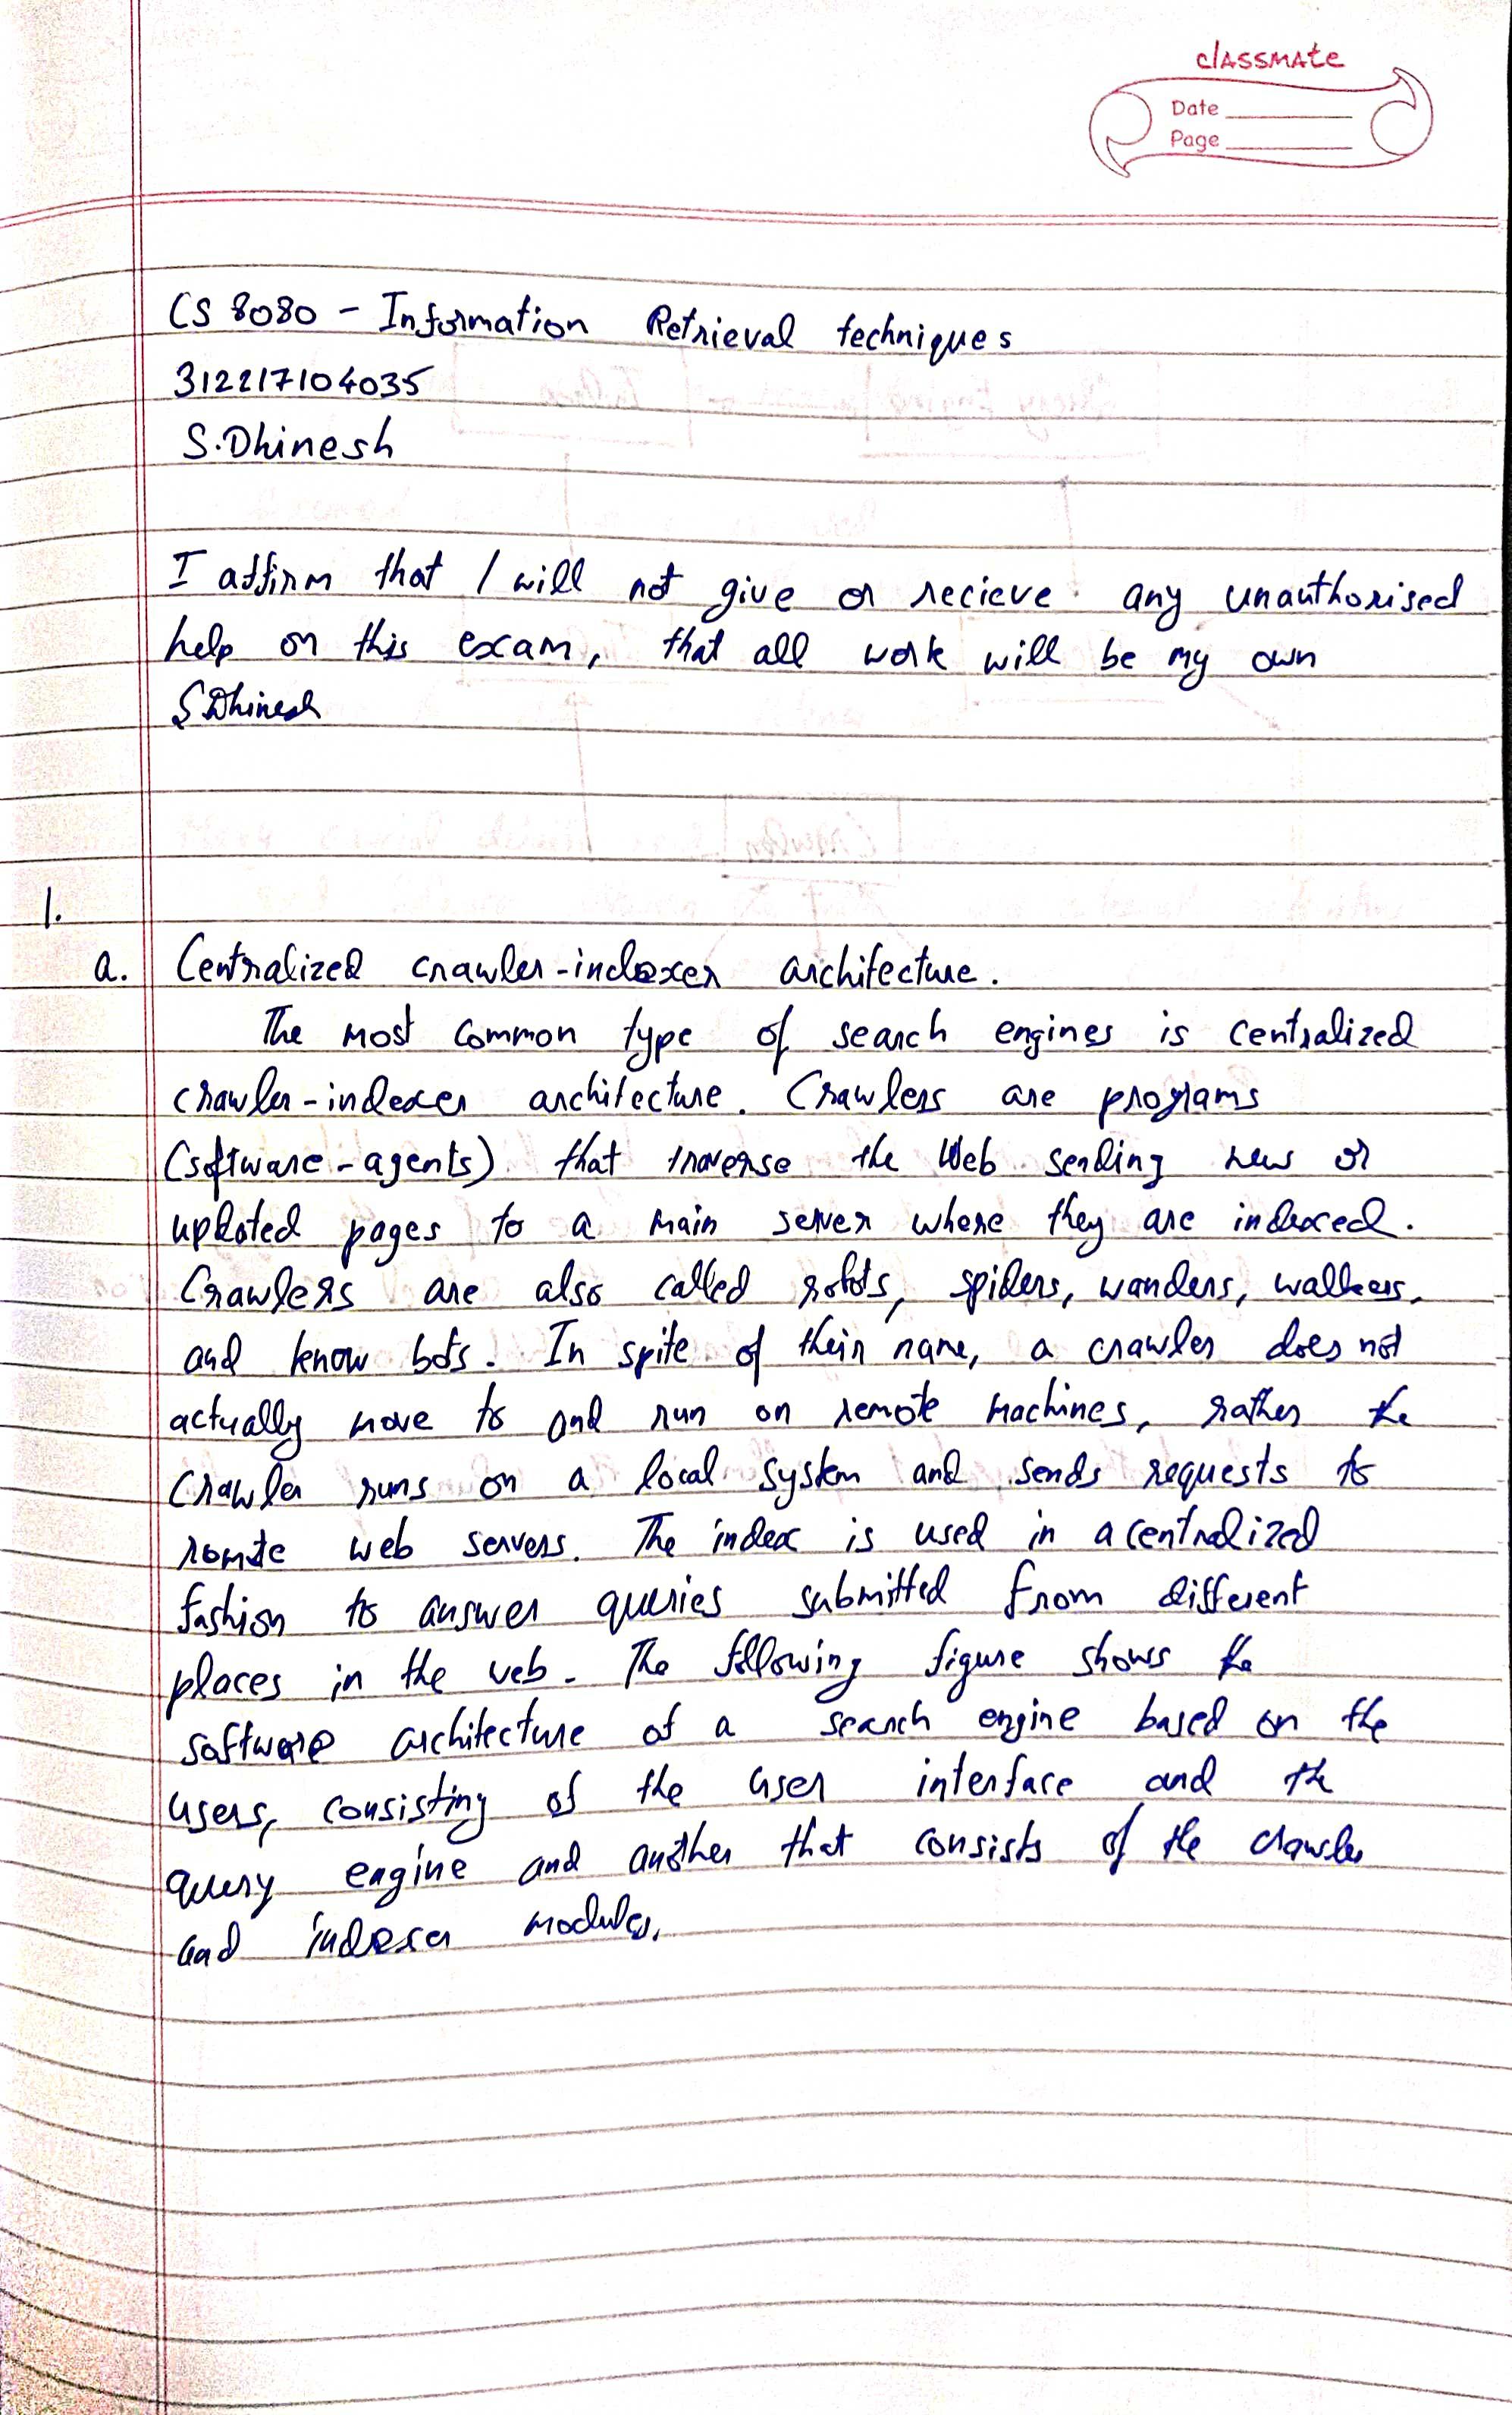 classmate
Date
Page
CS 8080 - Information Retrieval techniques
312217104035
S.Dhinesh
I affirm that I will not give or recieve any unauthorised
help on this exam, that all work will be my own
S Dhinesh
1.
a. Centralized crawler-indexer architecture.
The most common type of search engines is centralized
crawler-indexer architecture. Crawlers are programs
(software-agents) that traverse the Web sending new or
updated pages to a main server where they are indexed.
Crawlers are also called robots, spiders, wanders, walkers,
and know bots. In spite of their name, a crawler does not
actually move to and run on remote machines, rather the
crawler runs on a local system and sends requests to
romote web servers. The index is used in a centralized
fashion to answer queries submitted from different
places in the web. The following figure shows the
software architecture of a search engine based on the
users, consisting of the user interface and the
query engine and another that consists of the crawler
and indexer modules.